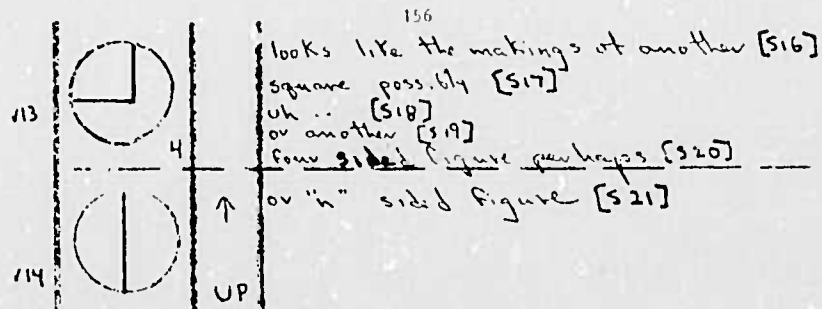 156
looks like the makings of another [S16]
square possibly [S17]
uh .. [S18]
or another [S19]
four sided figure perhaps [S20]
or "n" sided figure [S21]
V13
4
V14
↑
UP